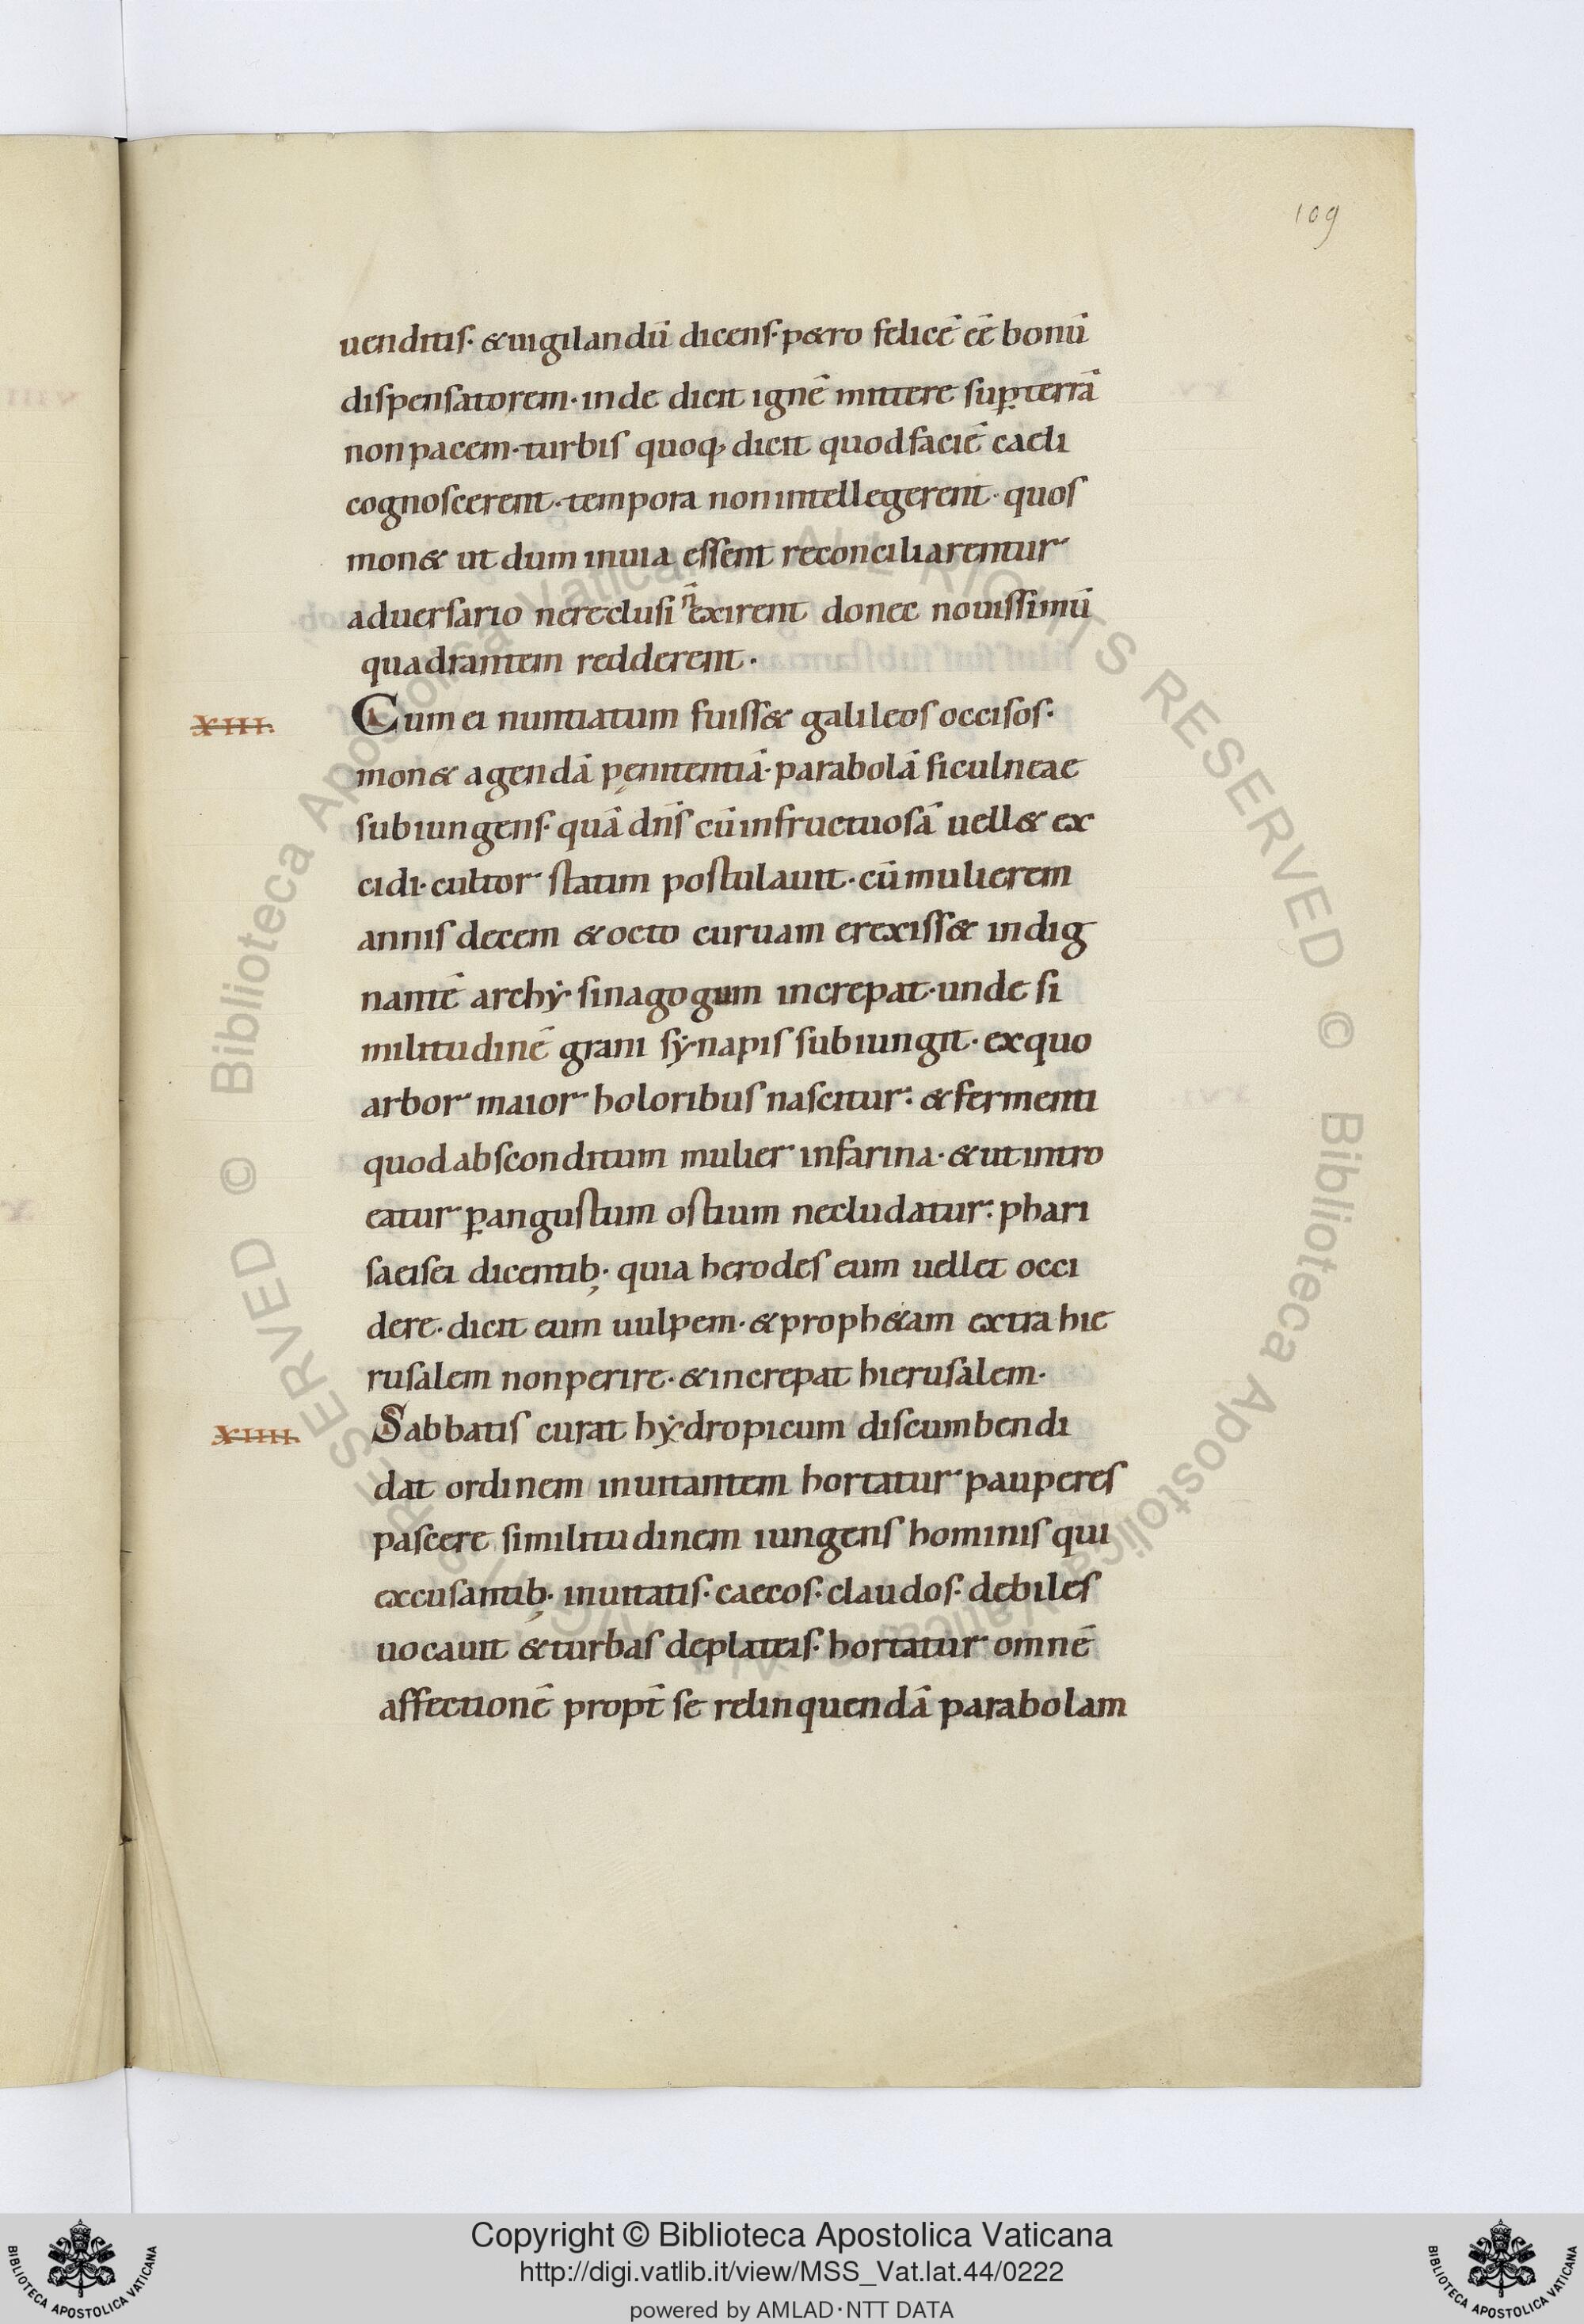 109
uenditis· &uigilandū dicens· p&ro felicē eē bonū
dispensatorem· inde dicit ignē mittere suꝑterrā
nonpacem· turbis quoq; dicit quodfaciē caeli
cognoscerent· tempora nonintellegerent· quos
mon& ut dum inuia essent reconciliarentur
aduersario nereclusi n̄ exirent donec nouissimū
quadrantem redderent·
XIII. Cum ei nuntiatum fuiss& galileos occisos·
mon& agendā pęnitentiā· parabolā ficulneae
subiungens· quā dn̄s cū infructuosā uell& ex
cidi· cultor statim postulauit· cū mulierem
annis decem &octo curuam erexiss& indig
nantē archẏ sinagogum increpat· unde si
militudinē grani sẏnapis subiungit· exquo
arbor maior holoribus nascitur: &fermenti
quodabsconditum mulier infarina· &utintro
eatur ꝑangustum ostium necludatur: phari
saeisei dicentib;· quia herodes eum uellet occi
dere· dicit eum uulpem· &proph&am extra hie
rusalem nonperire· &increpat hierusalem·
XIIII. Sabbatis curat hẏdropicum discumbendi
dat ordinem inuitantem hortatur pauperes
pascere similitudinem iungens hominis qui
excusantib;· inuitatis· caecos· claudos· debiles
uocauit &turbas deplateis· hortatur omnē
affectionē propt̄ se relinquendā parabolam
© Biblioteca Apostolica Vaticana ALL RIGHTS RESERVED
© Biblioteca Apostolica Vaticana ALL RIGHTS RESERVED
BIBLIOTECA APOSTOLICA VATICANA
Copyright © Biblioteca Apostolica Vaticana
http://digi.vatlib.it/view/MSS_Vat.lat.44/0222
powered by AMLAD·NTT DATA
BIBLIOTECA APOSTOLICA VATICANA